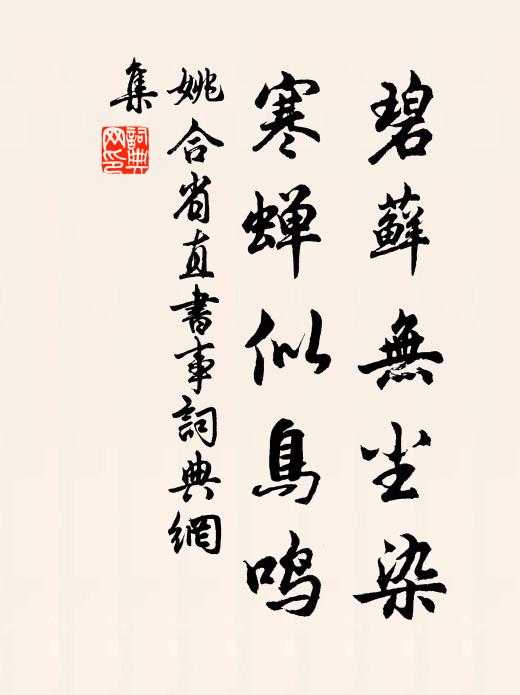 碧蘚無尘染
寒蝉似鳥鳴
姚合省直書事詞典網
集
詞典网印